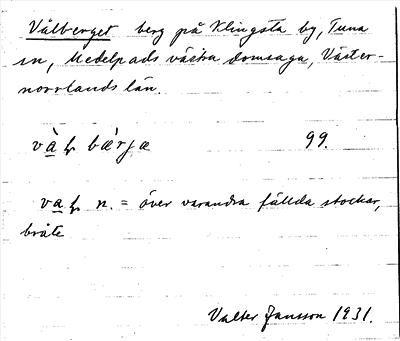 Vålberget berg på Klingsta by, Tuna
sn, Medelpads västra domsaga, Väster-
norrlands län.
99.
n. = över varandra fällda stockar,
bråte
Valter Jansson 1931.